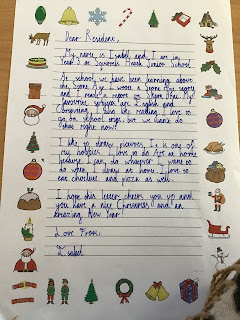 Dear Resident,
My name is Isabel and I am in
Year 3 at Squirrels Heath Junior School.
At school, we have been learning about
the Stone Age. I wrote a Stone Age story
and I made a report on Stone Age. My
favourite subjects are English and
Computing. I also like reading. I love to
go on school trips, but we can't do
that right now!
I like to draw pictures. It is one of
my hobbies. I love to do Art at home
because I can do whatever I want to
do when I draw at home. I love to
eat chocolate and pizza as well.
I hope this letter cheers you up and
you have a nice Christmas and an
amazing New Year!
Love From,
Isabel